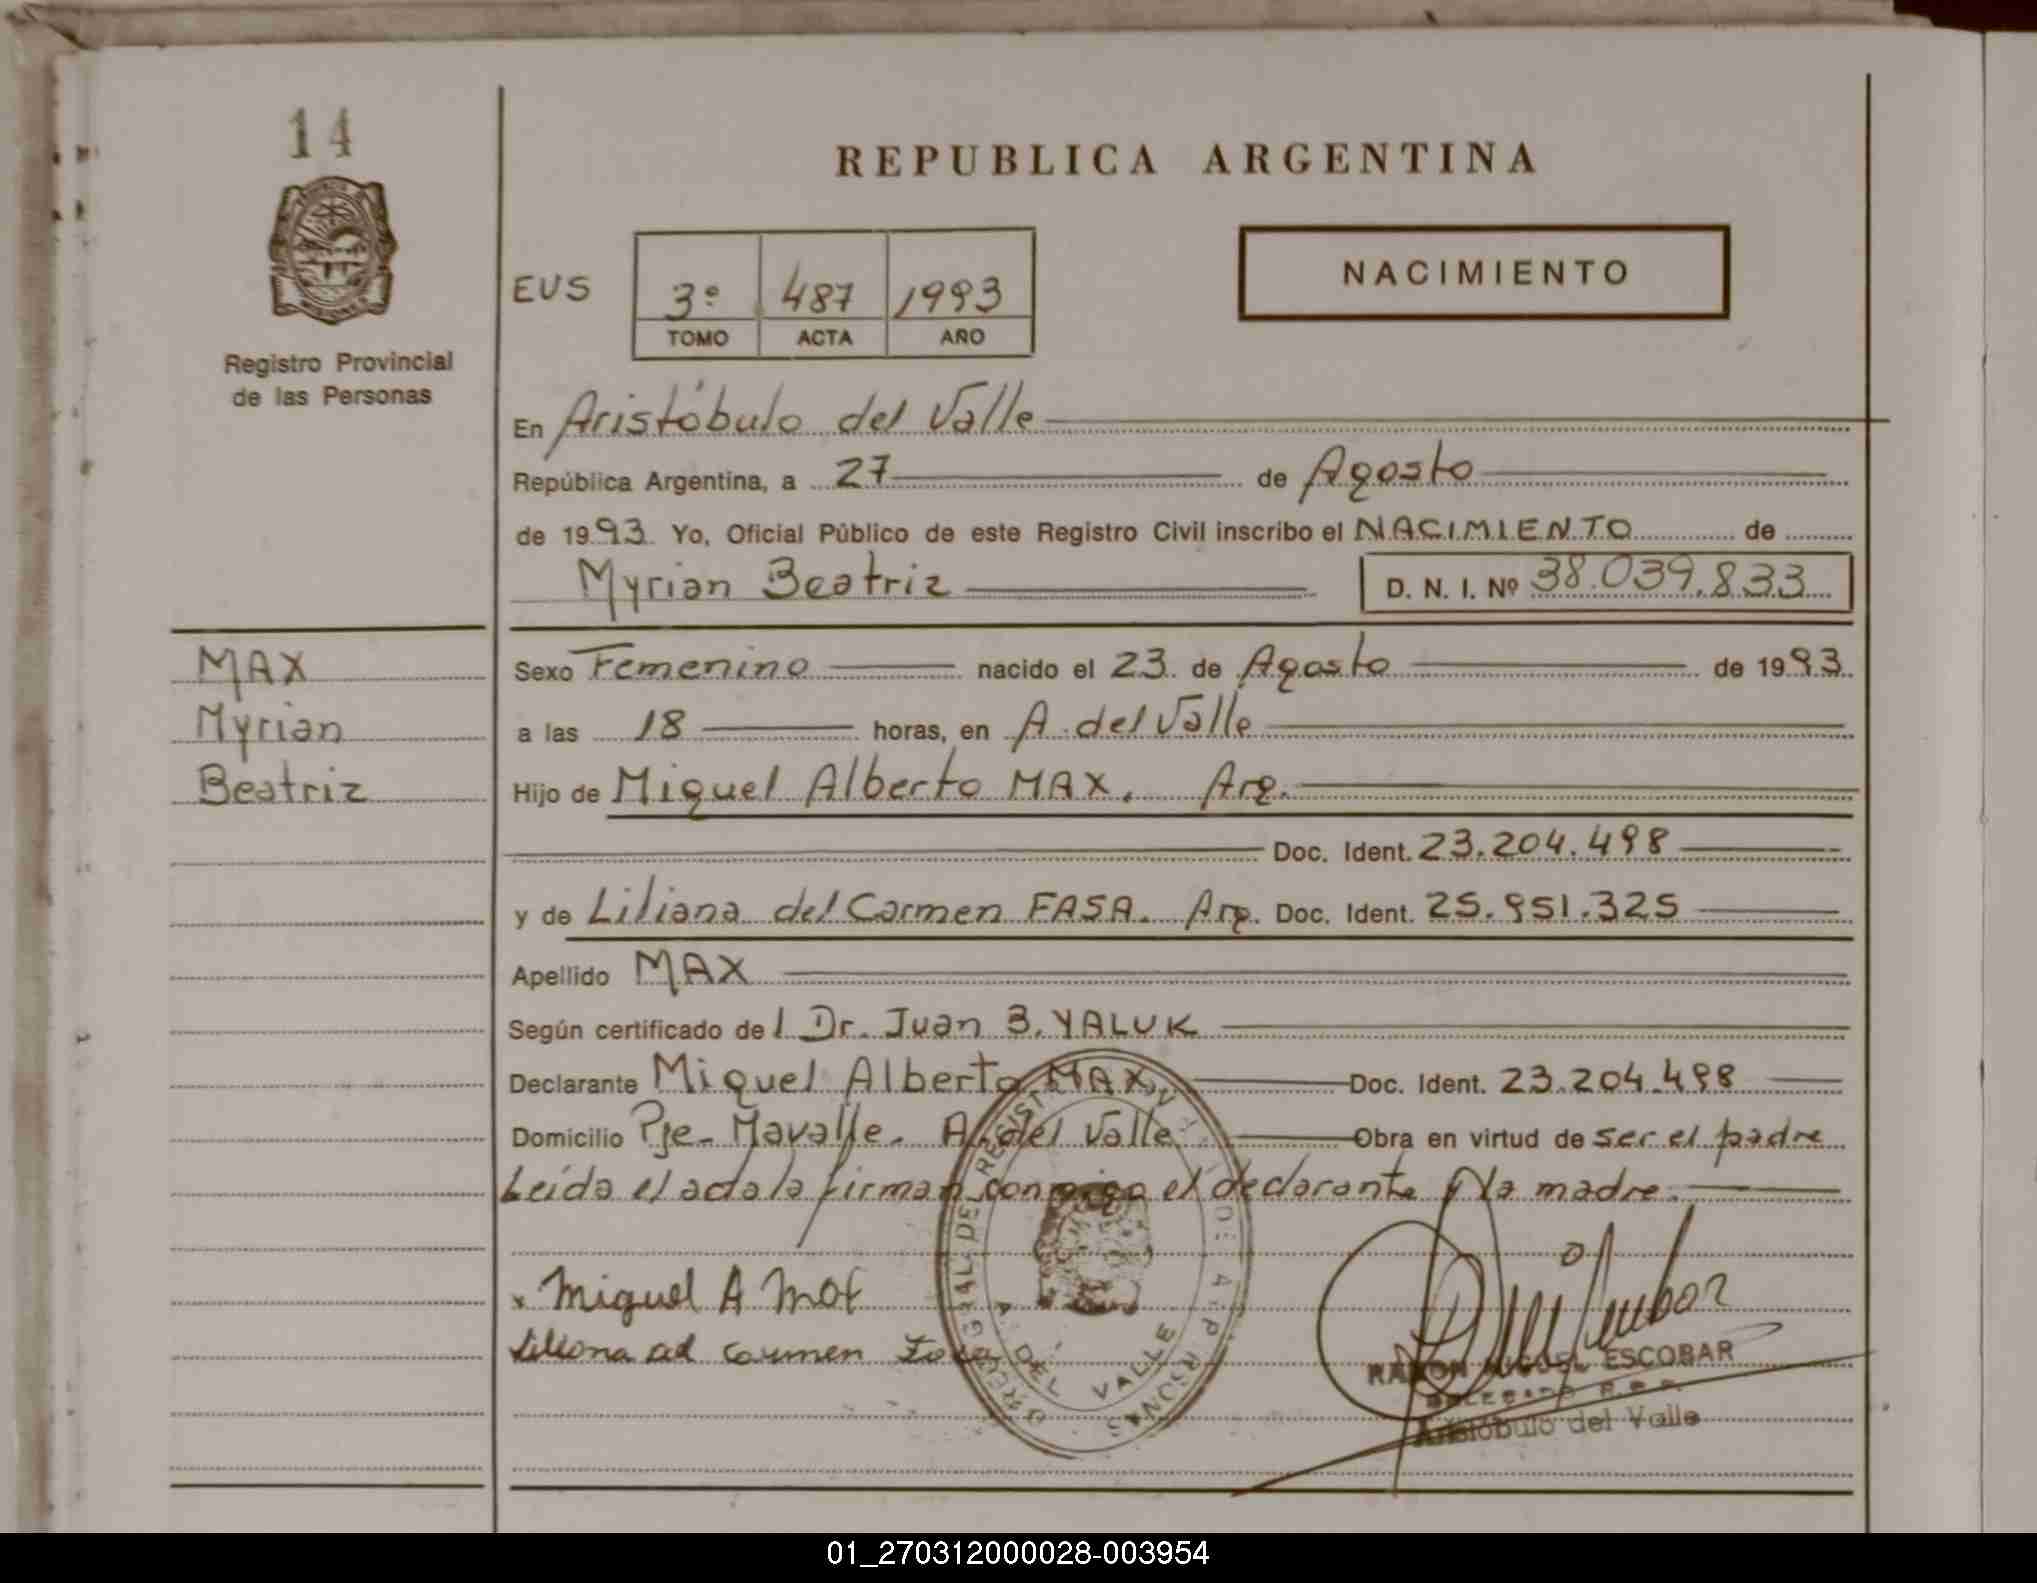 14
Registro Provincial
de las Personas
MAX
Myrian
Beatriz
REPUBLICA ARGENTINA
NACIMIENTO
EUS 3º 487 1993
TOMO ACTA AÑO
En Aristóbulo del Valle
República Argentina, a 27 de Agosto
de 1993 Yo, Oficial Público de este Registro Civil inscribo el NACIMIENTO de
Myrian Beatriz D. N. I. Nº 38.039.833
Sexo Femenino nacido el 23 de Agosto de 1993
a las 18 horas, en A. del Valle
Hijo de Miguel Alberto MAX. Arg.
Doc. Ident. 23.204.498
y de Liliana del Carmen FASA. Arg. Doc. Ident. 25.951.325
Apellido MAX
Según certificado del Dr. Juan B. YALUK
Declarante Miguel Alberto MAX, Doc. Ident. 23.204.498
Domicilio Pje- Mavalle. A. del Valle Obra en virtud de ser el padre
Leída el acta la firman conmigo el declarante y la madre.
Miguel A
RAMON MIGUEL ESCOBAR
Aristóbulo del Valle
A. DEL VALLE
01_270312000028-003954